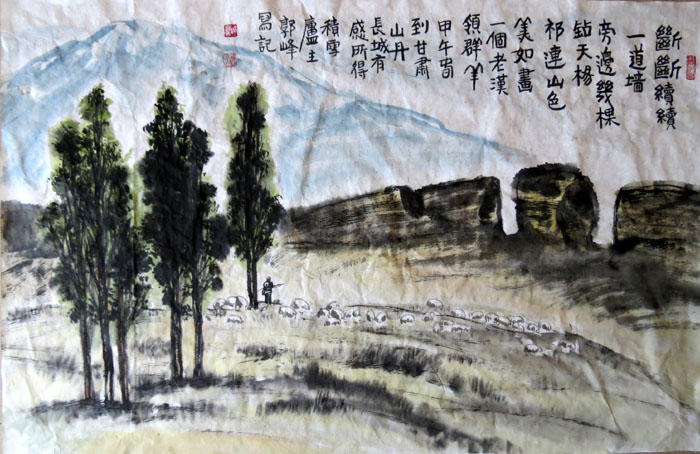 斷斷續續
一道墙
旁邊幾棵
鉆天楊
祁連山色
美如畫
一個老漢
領群羊
甲午
到甘肅
山丹
長城有
感所得
積雪
廬主
郭峰
寫記